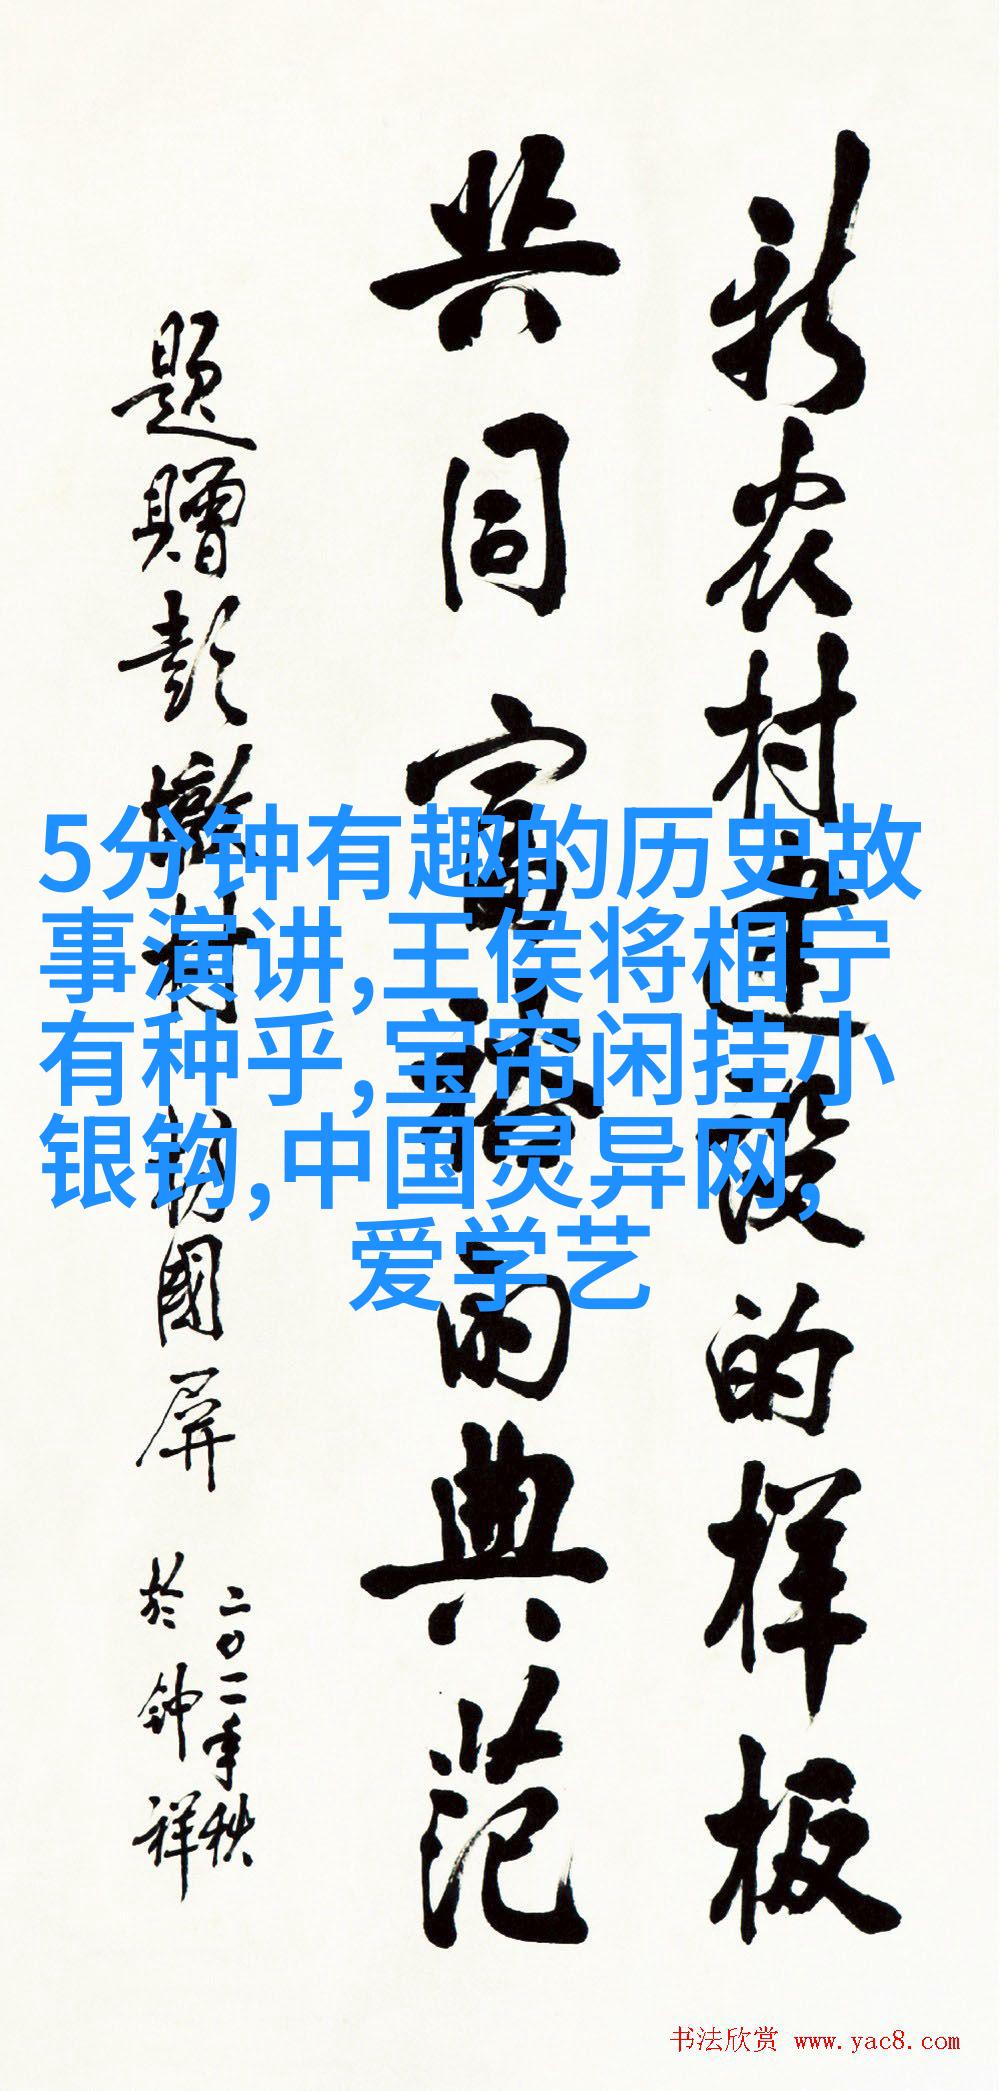 新农村建设的样板
共同富裕的典范
题赠彭墩村 国屏
二〇一一年秋
於钟祥
5分钟有趣的历史故
事演讲,王侯将相宁
有种乎,宝帘闲挂小
银钩,中国灵异网,
爱学艺
书法欣赏 www.yac8.com